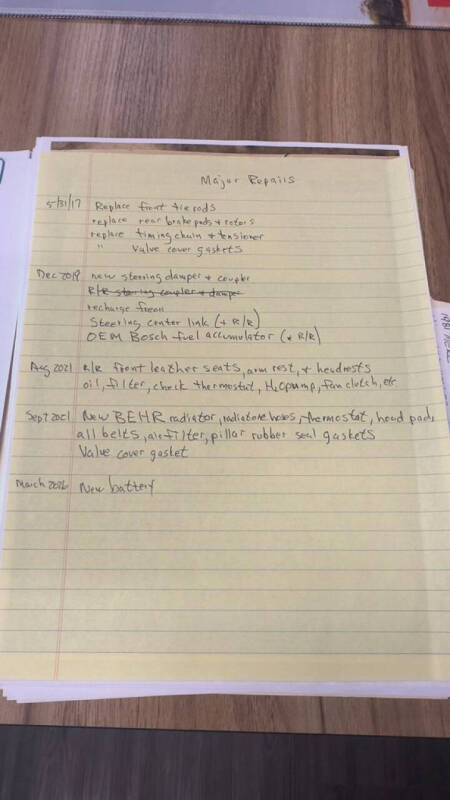 Major Repairs
5/31/17 Replace front tie rods
replace rear brake pads + rotors
replace timing chain + tensioner
" Valve cover gaskets
Dec 2019 new steering damper + coupler
R/R steering coupler + damper
recharge freon
Steering center link (+ R/R)
OEM Bosch fuel accumulator (+ R/R)
Aug 2021 R/R front leather seats, arm rest, + headrests
oil, filter, check thermostat, H2O pump, fan clutch, etc
Sept 2021 New BEHR radiator, radiator hoses, thermostat, hood pads
all belts, air filter, pillar rubber seal gaskets
Valve cover gasket
March New battery